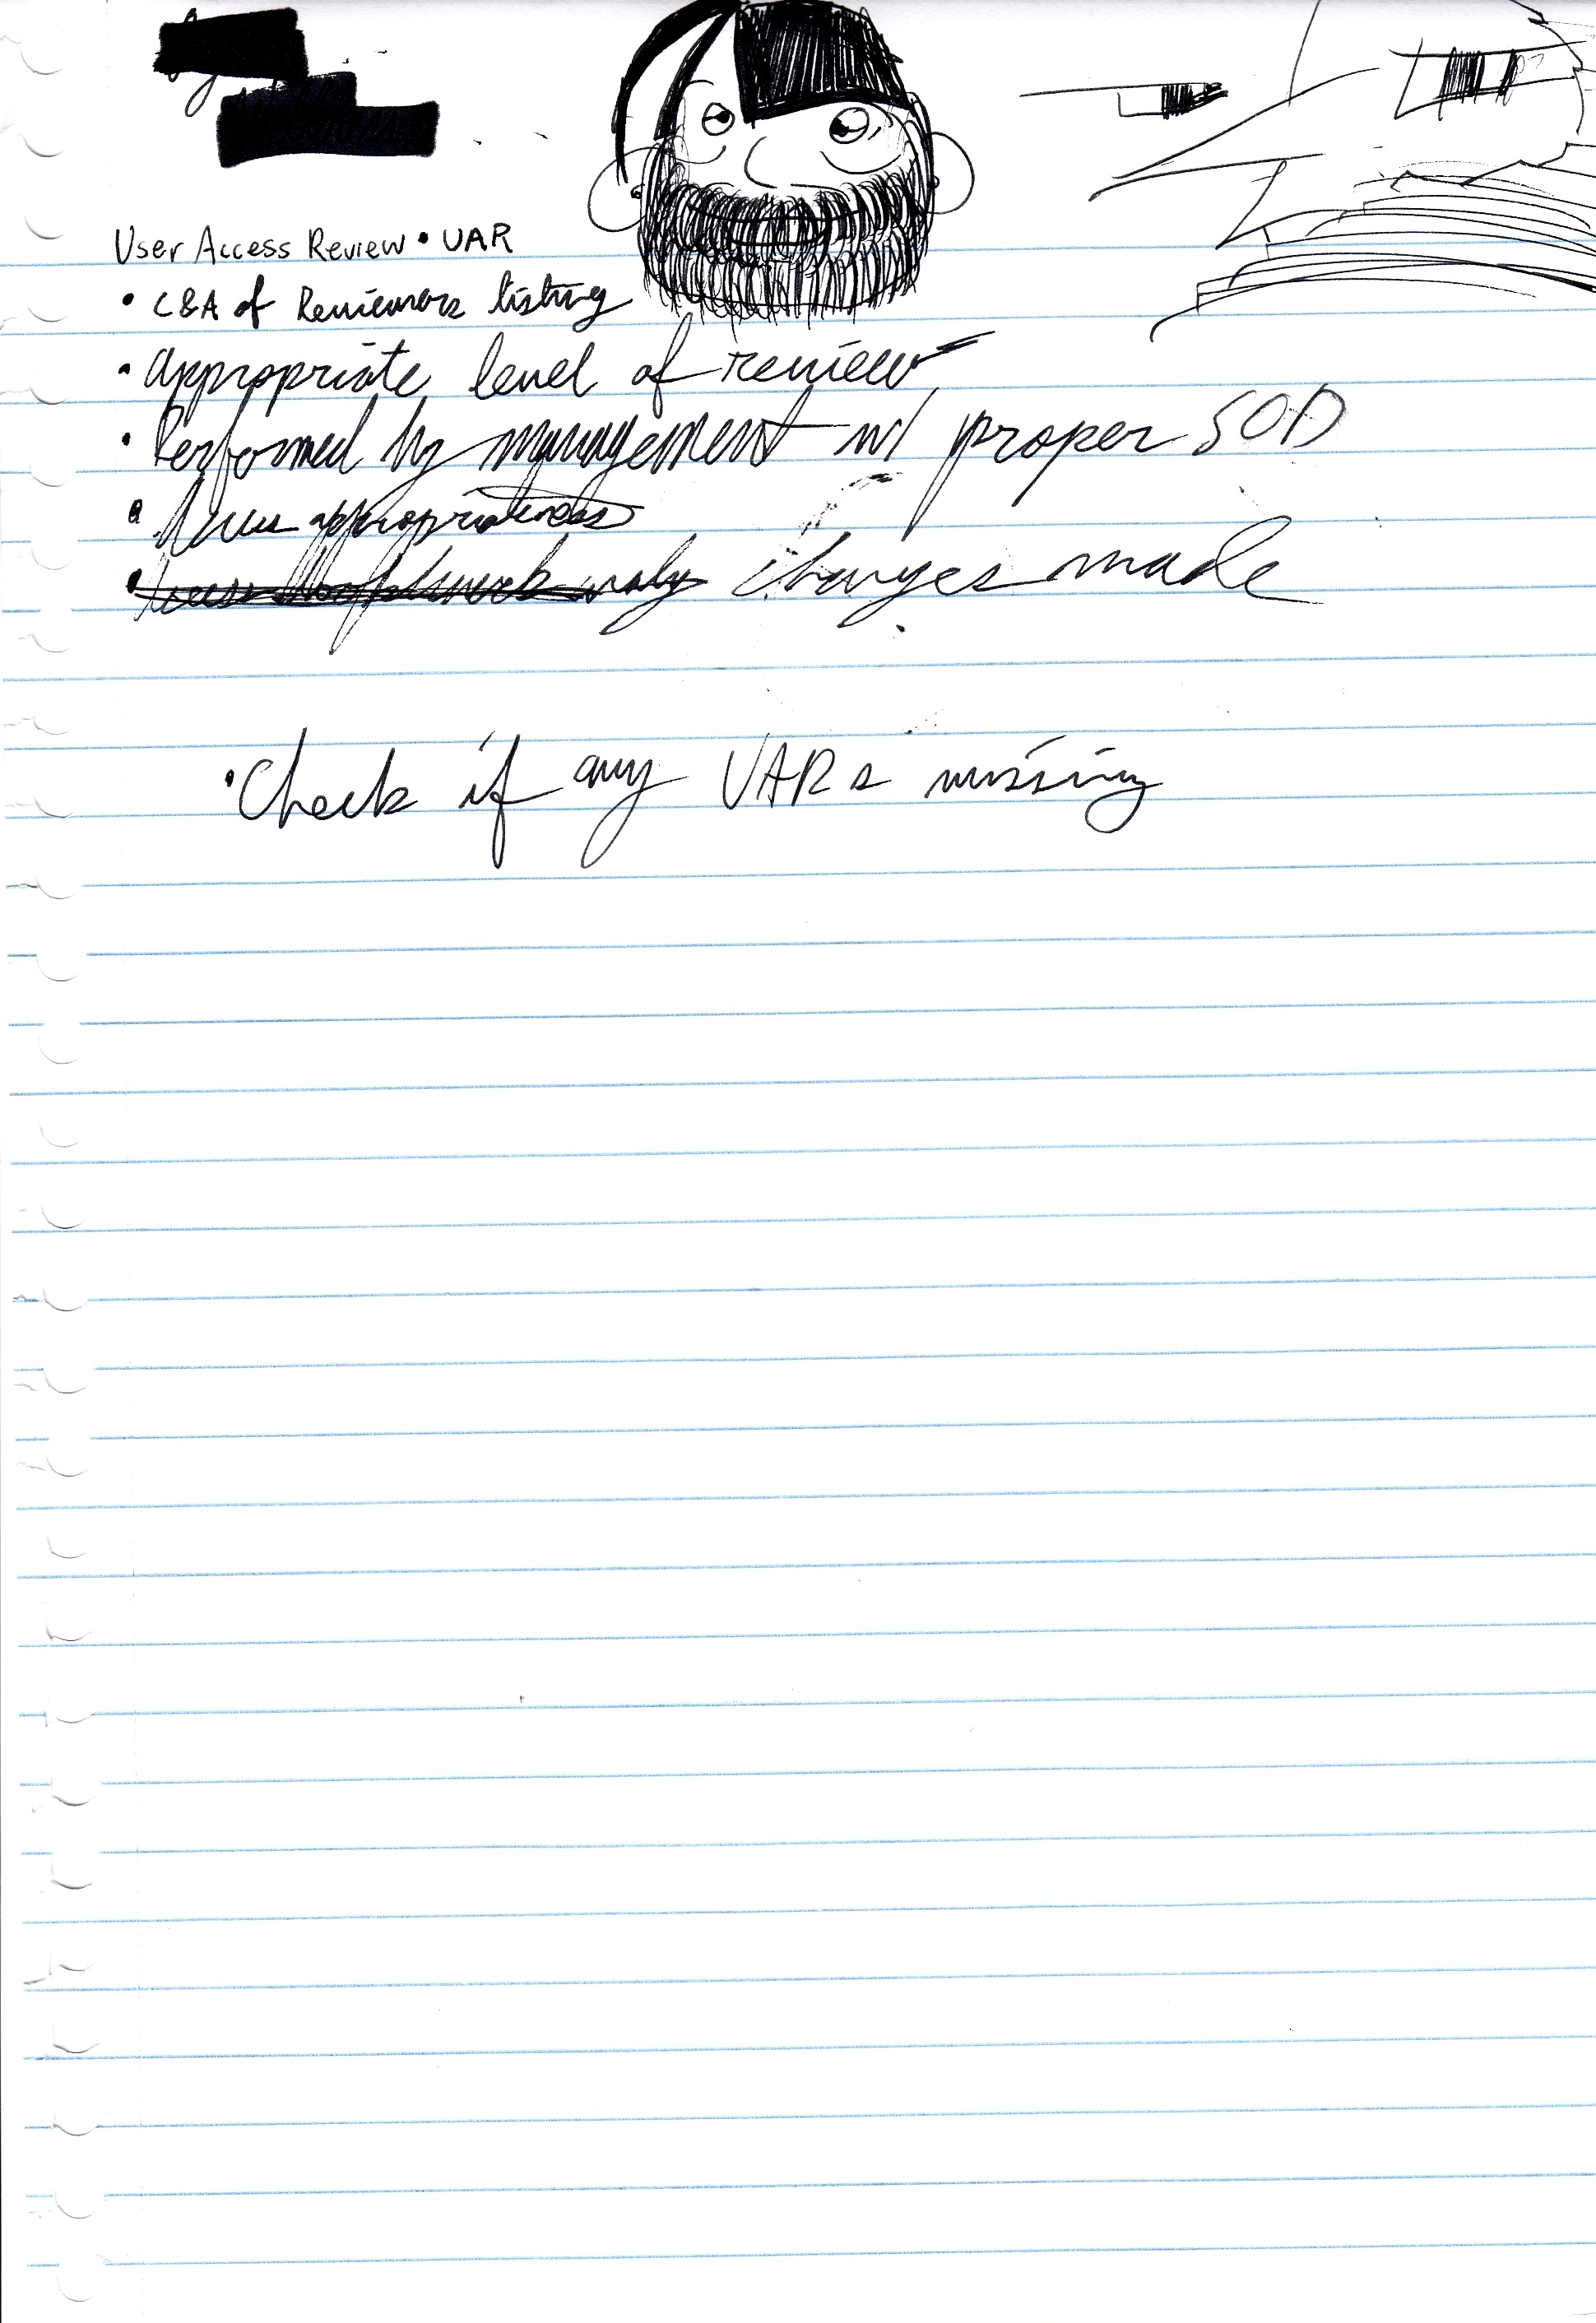 User Access Review • UAR
• C&A of Reviewers listing
• appropriate level of review
• Performed by management w/ proper SOD
• Access appropriateness
• changes made
• Check if any UARs missing